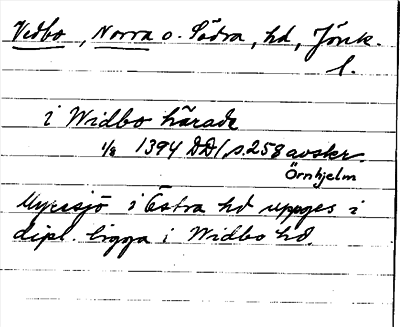 Vedbo, Norra o. Södra, hd, Jönk.
l.
i Widbo härade
1/8 1394 DD 1, s. 258 avskr.
Örnhjelm
Myresjö i Östra hd uppges i
dipl. ligga i Widbo hd.